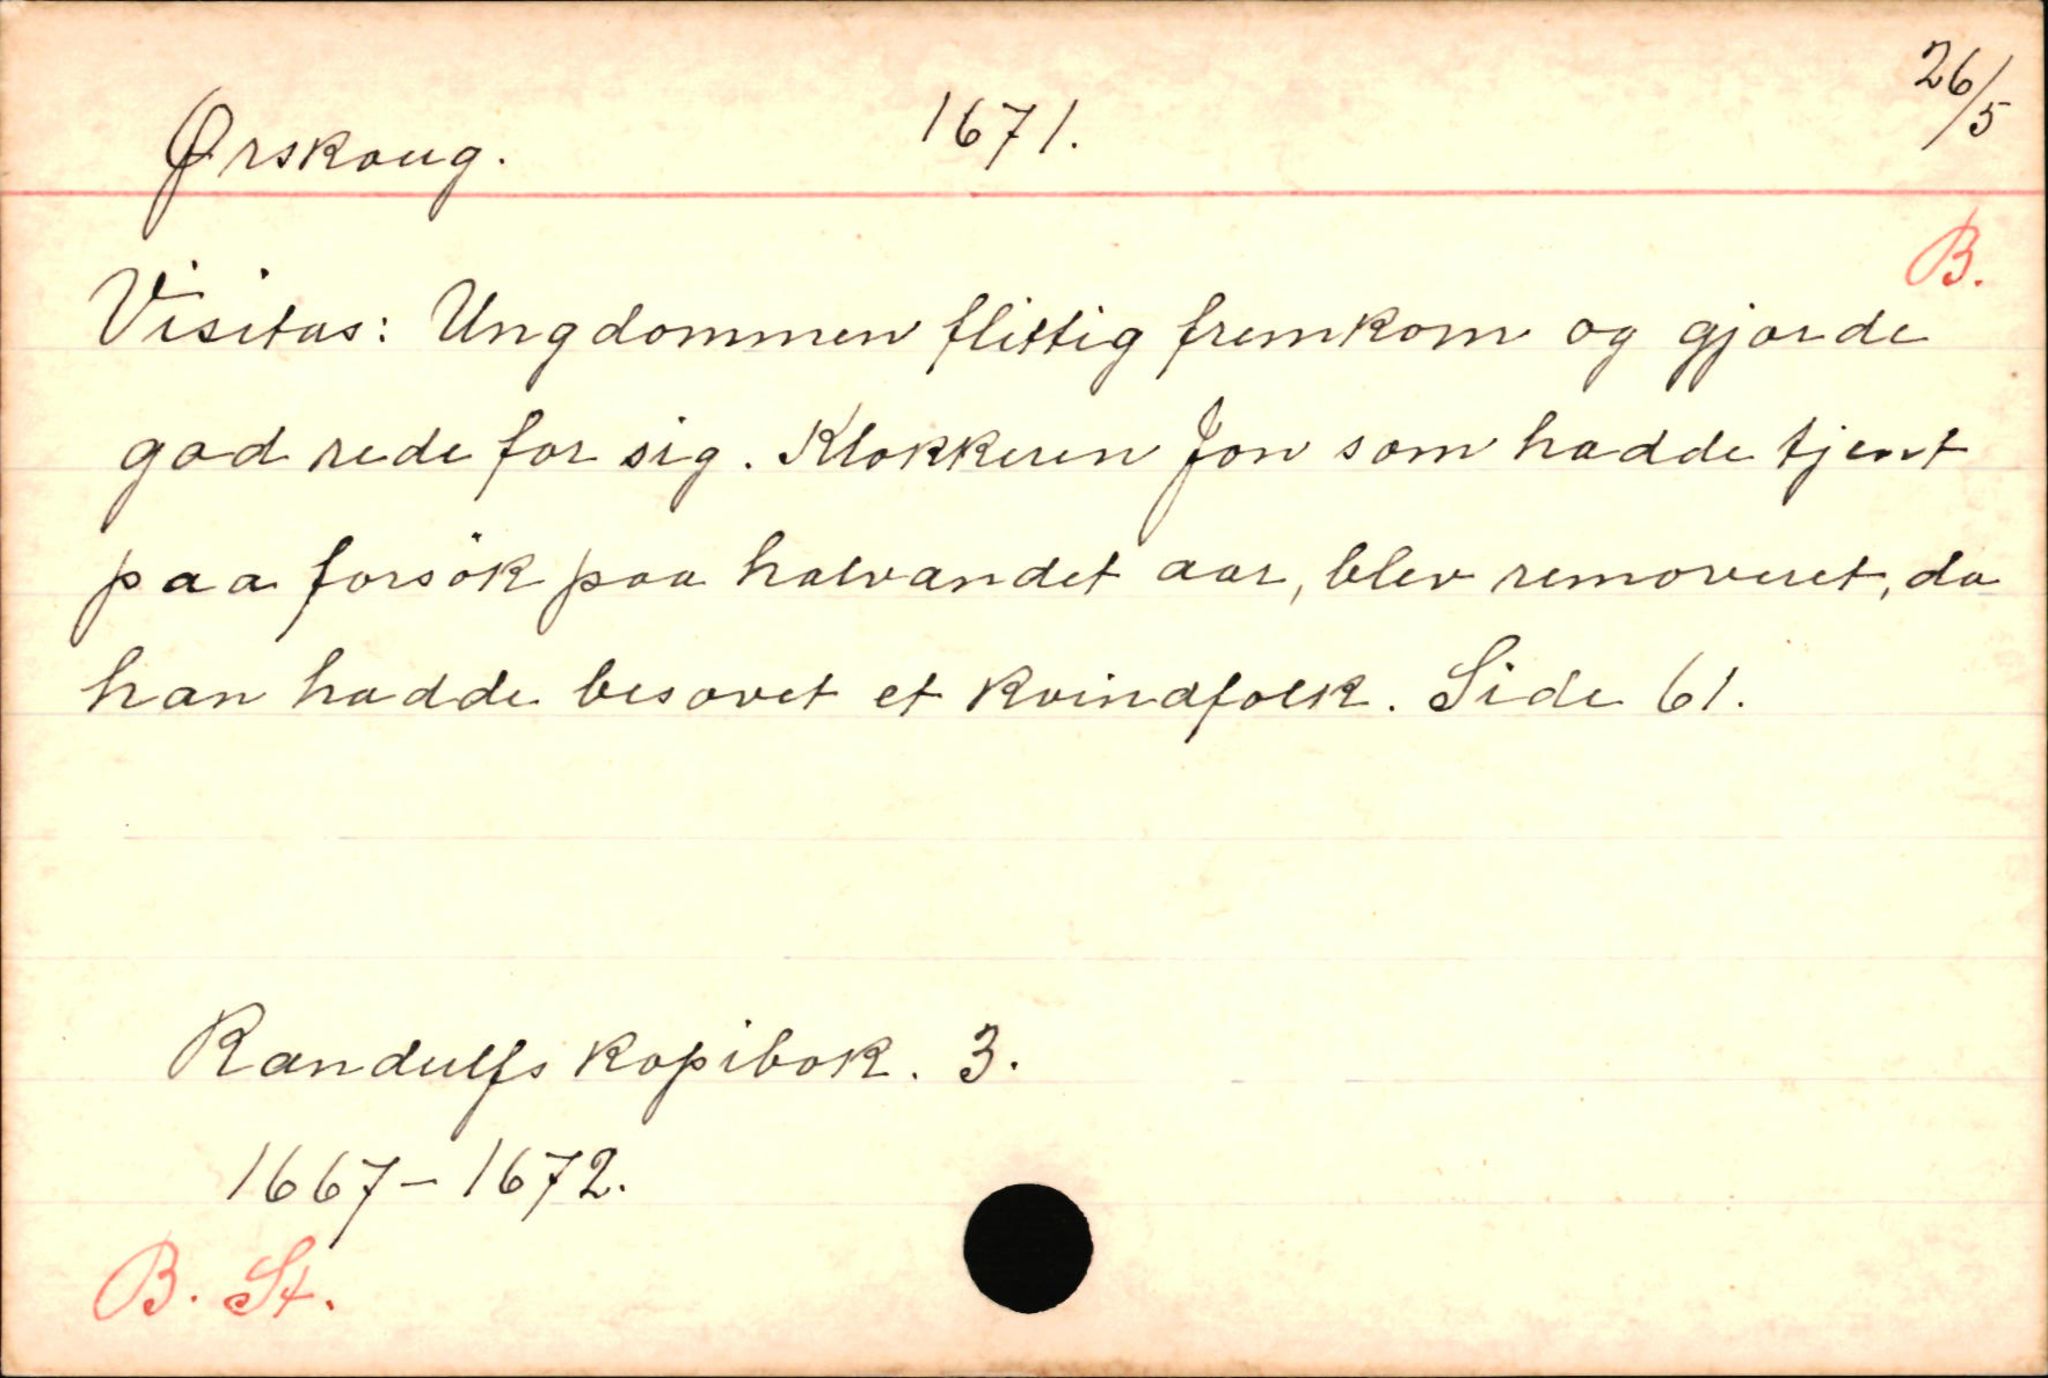 Ørskoug. 1671. 26/5
B.
Visitas: Ungdommen flittig fremkom og gjorde
god rede for sig. Klokkeren Jon som hadde tjent
paa forsök paa halvandet aar, blev removeret, da
han hadde besovet et kvindfolk. Side 61.
Randulfs kopibok. 3.
1667-1672.
B. St.